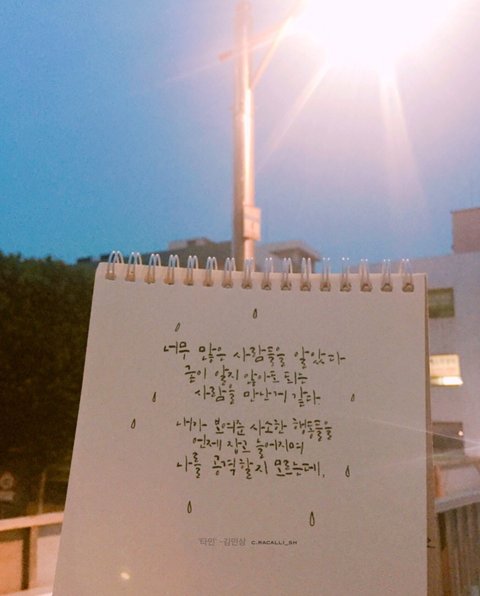 너무 많은 사람들을 알았다
굳이 알지 않아도 되는
사람을 만난게 같다
내가 보여준 사소한 행동들을
언제 잡고 늘어지며
나를 공격할지 모르는데,
'타인' -김민상 C.RACALLI_SH